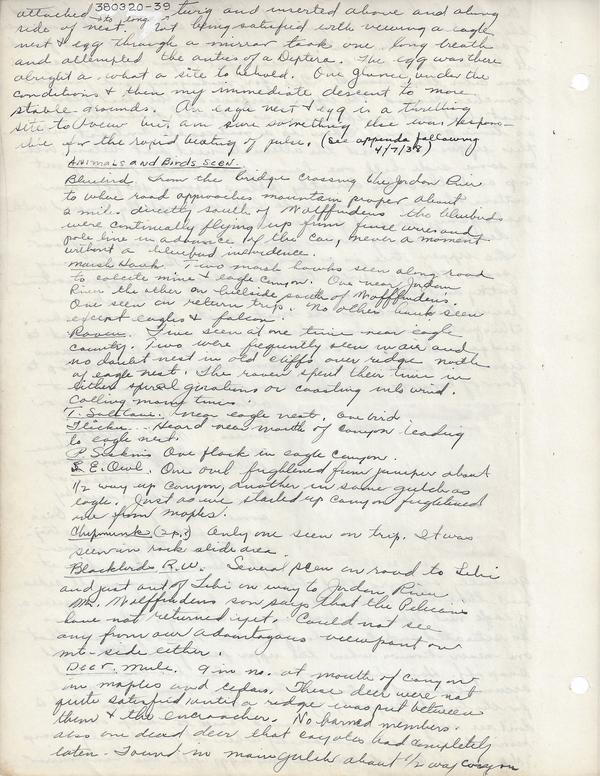 380320-39
attached to long twig and inserted above and along
side of nest. Not being satisfied with viewing a eagle
nest & egg through a mirror took one long breath
and attempted the antics of a Diptera. The egg was there
alright & what a site to behold. One glance under the
conditions & then my immediate descent to more
stable grounds. An eagle nest & egg is a thrilling
site to view but am sure something else was respon-
sible for the rapid beating of pulse. (See appenda following
4/7/38)
Animals and Birds Seen.
Bluebird. From the bridge crossing the Jordon River
to where road approaches mountain proper about
2 miles directly south of Wolffindens the bluebirds
were continually flying up from fence wires and
pole line in advance of the car, never a moment
without a bluebird in evidence.
Marsh Hawk. Two marsh hawks seen along road
to calcite mine & eagle canyon. One near Jordon
River the other on hillside south of Wolffindens.
One seen on return trip. No other hawk seen
except eagles & falcon.
Raven. Five seen at one time near eagle
country. Two were frequently seen in air and
no doubt nest in old cliffs over ridge north
of eagle nest. The raven spend their time in
either spiral girations or coasting into wind.
Calling many times.
T. Solitaire. near eagle nest. One bird.
Flicker. Heard near mouth of canyon leading
to eagle nest.
P. Siskins One flock in eagle canyon.
S. E. Owl. One owl frightened from juniper about
1/2 way up canyon, another in same gulch as
eagle. Just as we started up canyon frightened
one from maples.
Chipmunk (sp.?) Only one seen on trip. It was
seen in rock slide area.
Blackbirds R.W. Several seen on road to Lehi
and just out of Lehi on way to Jordon River
Mr. Wolffindens son says that the Pelicans
have not returned yet. Could not see
any from our advantagous viewpoint on
mt-side either.
Deer. Mule. 9 in no. at mouth of canyon
in maples and cedars. These deer were not
quite satisfied until a ridge was put between
them & the encroacher. No horned members.
also one dead deer that coyotes had completely
eaten. Found in main gulch about 1/2 way canyon